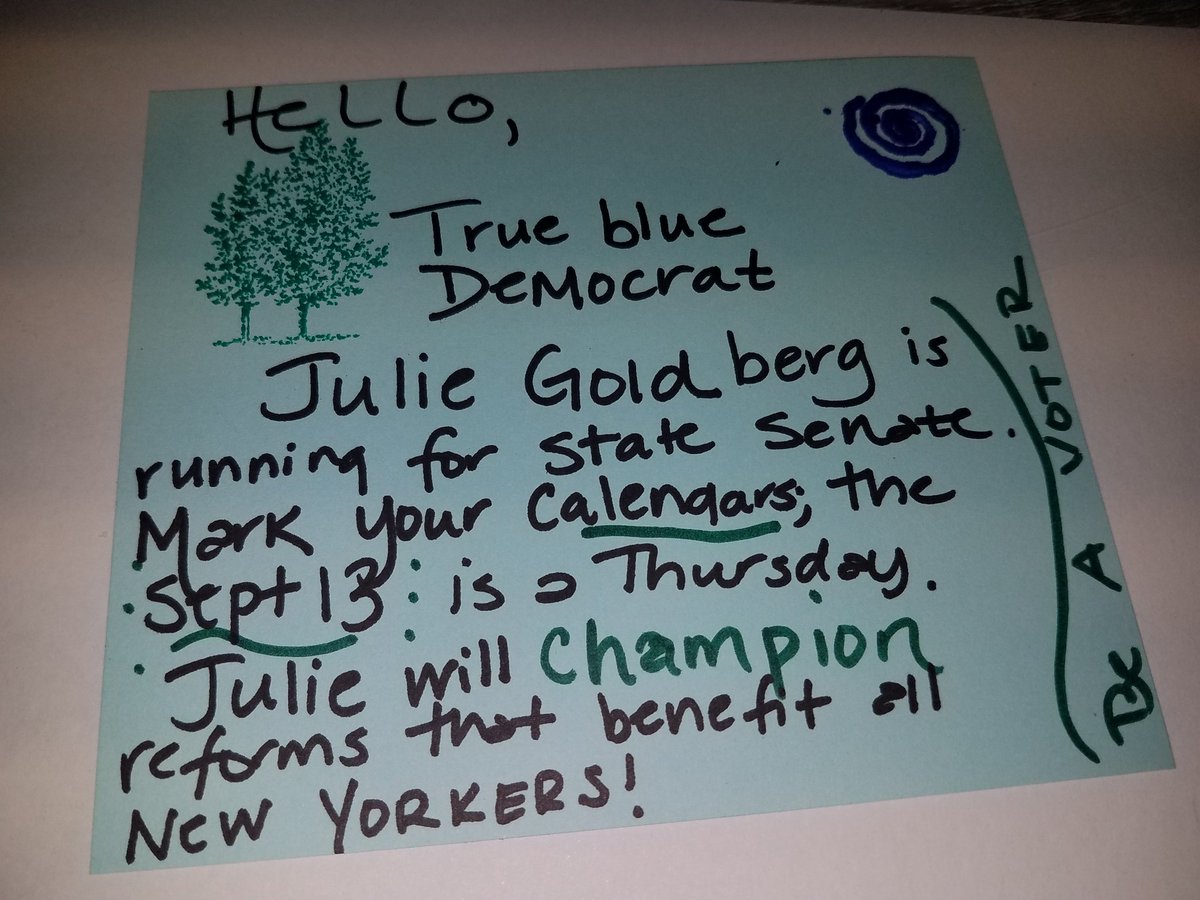 HeLLo,
True blue
DeMocrat
Julie Goldberg is
running for state senate.
Mark your Calendars; the
Sept 13 is a Thursday.
Julie will champion
reforms that benefit all
New YORKERS!
Be A VOTER